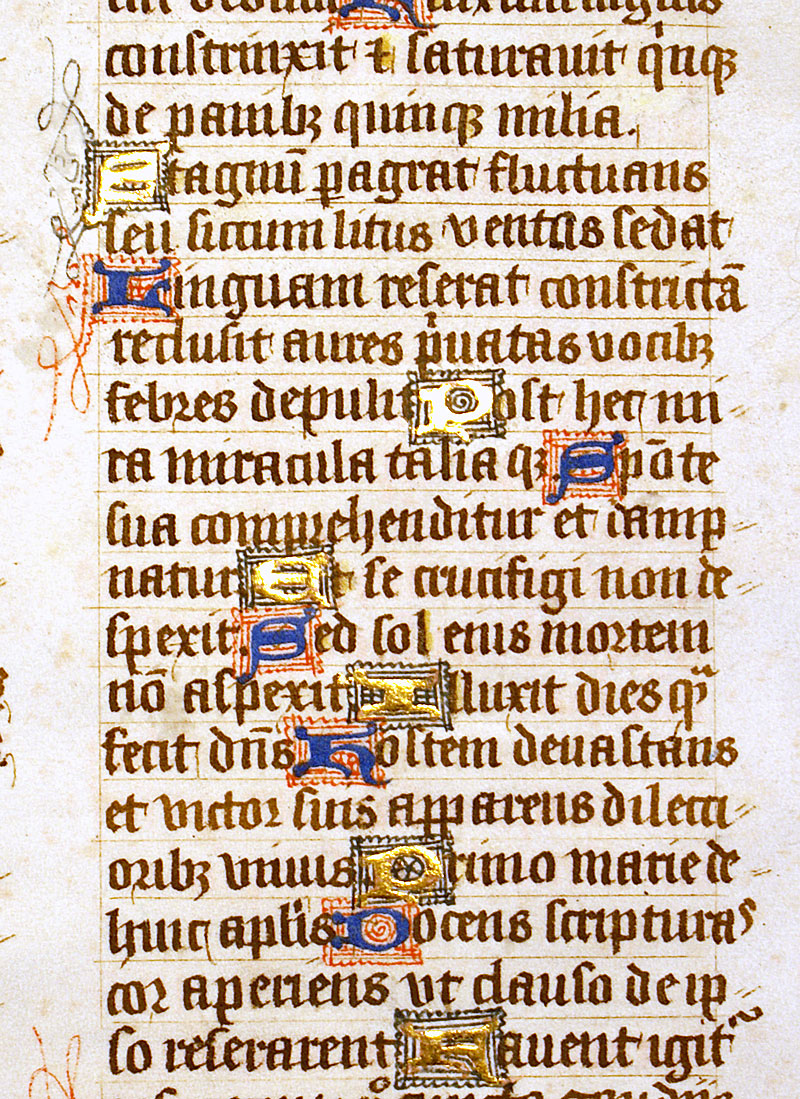 constrinxit ⁊ saturauit qͥnqꝫ
de panibꝫ quinqꝫ milia.
Stagnū ꝑagrat fluctuans
seu siccum litus ventos sedat
Linguam reserat constrictā
reclusit aures pͥuatas vocibꝫ
febres depulit Post hec mi
ra miracula talia qꝫ Spōte
sua comprehenditur et damp
natur Et se crucifigi non de
spexit. Sed sol eius mortem
nō aspexit Illuxit dies qᵃ̄
fecit dn̄s Hostem deuastans
et victor suis apparens dilecti
oribꝫ viuus Primo marie de
hinc apl̄is Docens scripturas
cor aperiens vt clauso de ip
so reserarent Fauent igit᷑